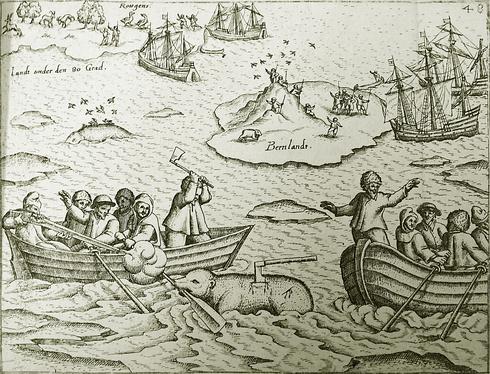 Rotgens.
48
Landt onder den 80 Grad.
Beernlandt.